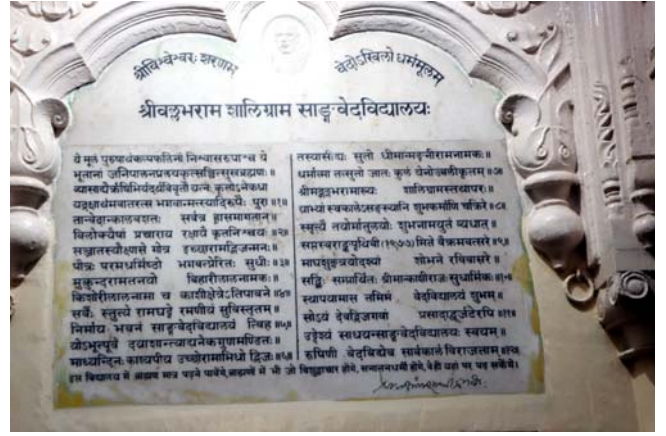 श्रीविश्वेश्वरः शरणम्
वेदोऽखिलो धर्ममूलम्
श्रीवल्लभराम शालिग्राम साङ्गवेदविद्यालयः
ये मूलं पुरुषार्थकल्पफलिनो निश्वासरूपाश्च ये
भूतानां जनिपालनप्रलयकृत्सच्चित्सुखब्रह्मणः॥
व्यासाद्यैर्ऋषिभिर्यदर्थविवृतौ यत्नः कृतोऽनेकधा
यद्रक्षार्थमवातरत्स भगवान्मत्स्यादिरूपैः पुरा॥१॥
तान्वेदान्कालवशतः सर्वत्र ह्रासमागतान्
विलोक्यैषां प्रचाराय रक्षायै कृतनिश्चयः॥२॥
पौत्रः परमधर्मिष्ठो भगवत्प्रेरितः सुधीः॥३॥
मुकुन्दरामतनयो बिहारीलालनामकः॥
किशोरीलालनामा च काशीक्षेत्रेऽतिपावने॥४॥
सर्वैः स्तुत्ये रामघट्टे रमणीयं सुविस्तृतम्
निर्माय भवनं साङ्गवेदविद्यालयं त्विह॥५॥
योऽभूत्पूर्वं दयाशान्त्याद्यनेकगुणमण्डितः॥
माध्यन्दिनः काश्यपीय उच्छोरामाभिधो द्विजः॥६॥
तस्यासीद्यः सुतो धीमान्मङ्गनीरामनामकः॥
धर्मात्मा तत्सुतो जातः कुलं येनोज्वलीकृतम्॥७॥
श्रीमद्वल्लभरामाख्यः शालिग्रामस्तथापरः॥
याभ्यां स्वकालेऽसङ्ख्यानि शुभकर्माणि चक्रिरे॥८॥
स्मृत्यै तयोर्मातुलयोः शुभमायतनं व्यधात्
सप्तस्वराङ्कपृथिवी (१९७७) मिते वैक्रमवत्सरे॥९॥
माघशुक्लत्रयोदश्यां शोभने रविवासरे॥
सद्भिः सम्प्रार्थितः श्रीमान्काशीराजः सुधार्मिकः॥१०॥
स्थापयामास तमिमं वेदविद्यालयं शुभम्॥
सोऽयं देवद्विजगवां प्रसादाद्धूर्जटेरपि॥११॥
उद्देश्यं साधयन्साङ्गवेदविद्यालयः स्वयम्॥
रूपिणी वेदविद्येव सार्वकालं विराजताम्॥१२॥
इस विद्यालय में ब्राह्मण मात्र पढ़ने पावेंगे, ब्राह्मणों में भी जो विशुद्धाचार होंगे, सनातनधर्मी होंगे, वेही यहां पर पढ़ सकेंगे।